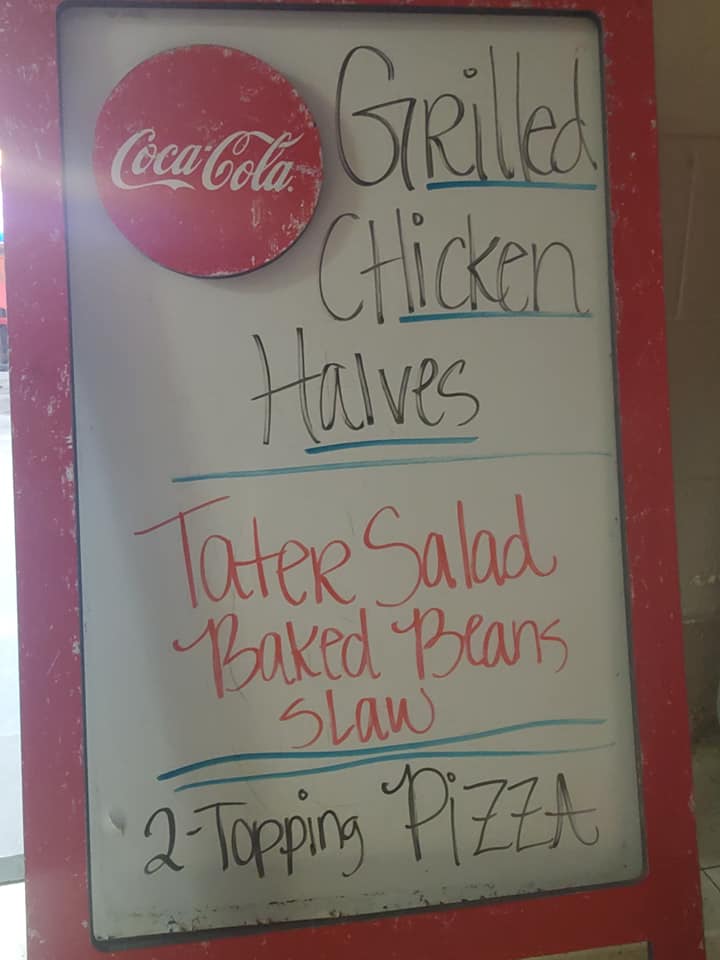 Coca-Cola
Grilled
Chicken
Halves
Tater Salad
Baked Beans
Slaw
2-Topping Pizza